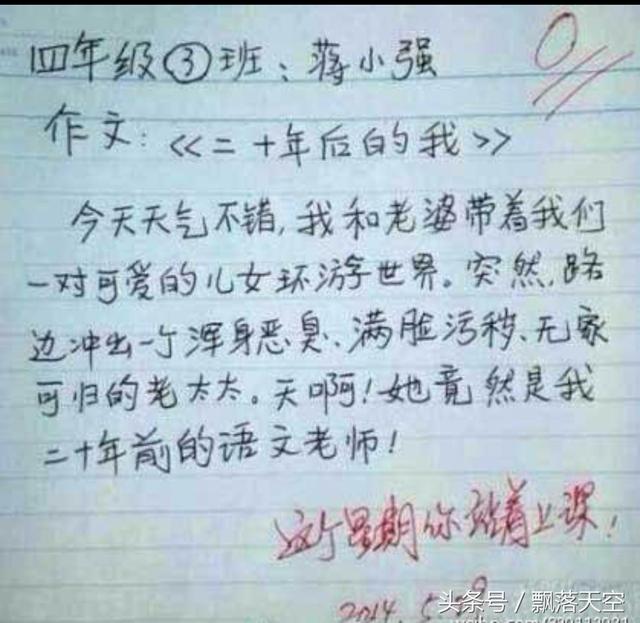 四年级③班：蒋小强
0
作文：《二十年后的我》
今天天气不错，我和老婆带着我们
一对可爱的儿女环游世界。突然，路
边冲出一个浑身恶臭、满脸污秽、无家
可归的老太太。天啊！她竟然是我
二十年前的语文老师！
这个星期你站着上课！
2014.5.
头条号／飘落天空